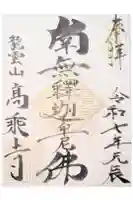 奉拝
令和七年元辰
南無釋迦牟尼佛
龍雲山
高乘寺